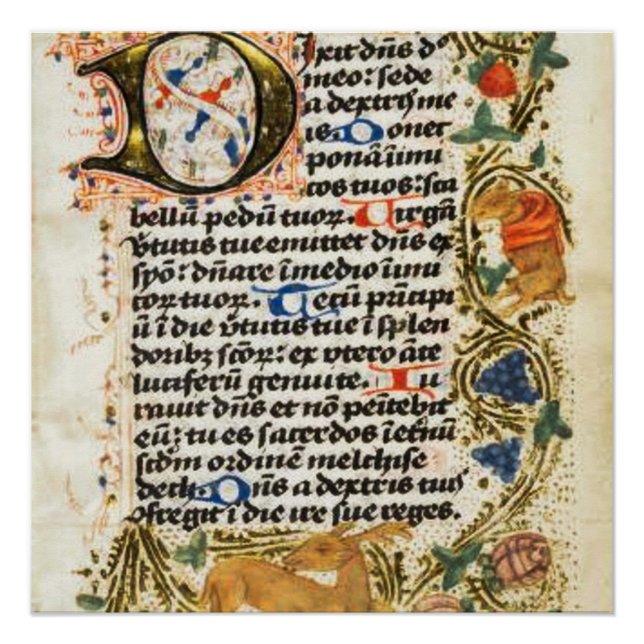 Dixit dn̄s d̄
meo: sede
a dextris me
is. Donec
ponā īimi
cos tuos: sca
bellū pedū tuoꝝ. Uirgā
v̄tutis tue emittet dn̄s ex
syō: dn̄are ī medio īimi
coꝝ tuoꝝ. Tecū prīcipi
ū ī die v̄tutis tue ī splen
doribꝫ sc̄oꝝ: ex vtero āte
luciferū genui te. Iu
rauit dn̄s et nō penītebit
eū: tu es sacerdos ī et̄nū
scd̄m ordinē melchise
dech. Dn̄s a dextris tuis
ꝯfregit ī die ire sue reges.